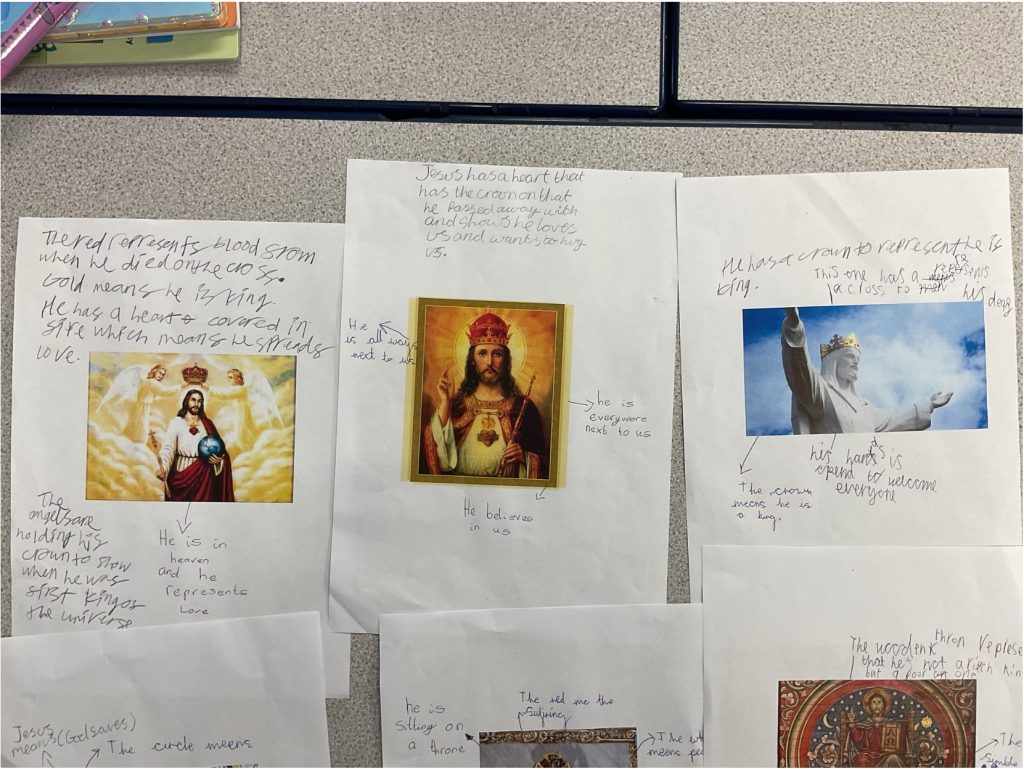 The red represents blood from
when he died on the cross.
Gold means he is king.
He has a heart covered in
fire which means he spreads
love.
The
angels are
holding his
crown to show
when he was
first king of
the universe
He is in
heaven
and he
represents
Love
Jesus has a heart that
has the croon on that
he Passed away with
and shows he loves
us and wants to hug
us.
He
is all ways
next to us
he is
everywere
next to us
He believes
in us
He has a crown to represent he is
king.
This one has a
a cross to
his
The crown
means he is
a king.
his hands is
opend to welcome
everyone
Jesus
means (God saves)
The circle means
he is
sitting on
a throne
The red me the
The
means
The thron
that he's not a king
but a poor
The